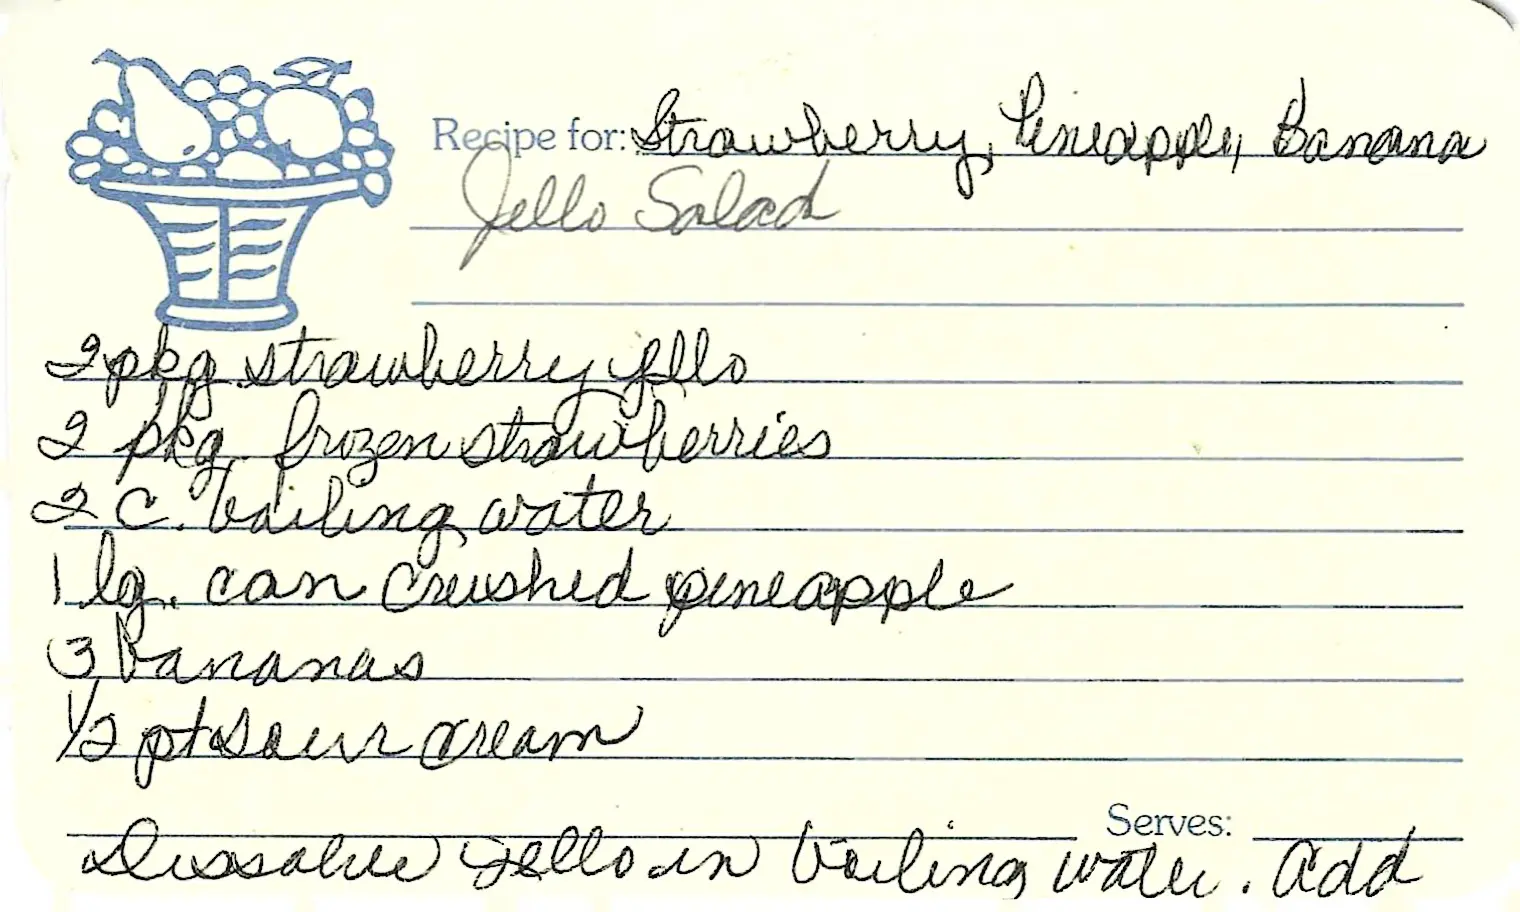 Recipe for: Strawberry, Pineapple, Banana
Jello Salad
2 pkg. strawberry jello
2 pkg. frozen strawberries
2 c. boiling water
1 lg. can crushed pineapple
3 bananas
1/2 pt sour cream
Serves:
Dissolve jello in boiling water. Add